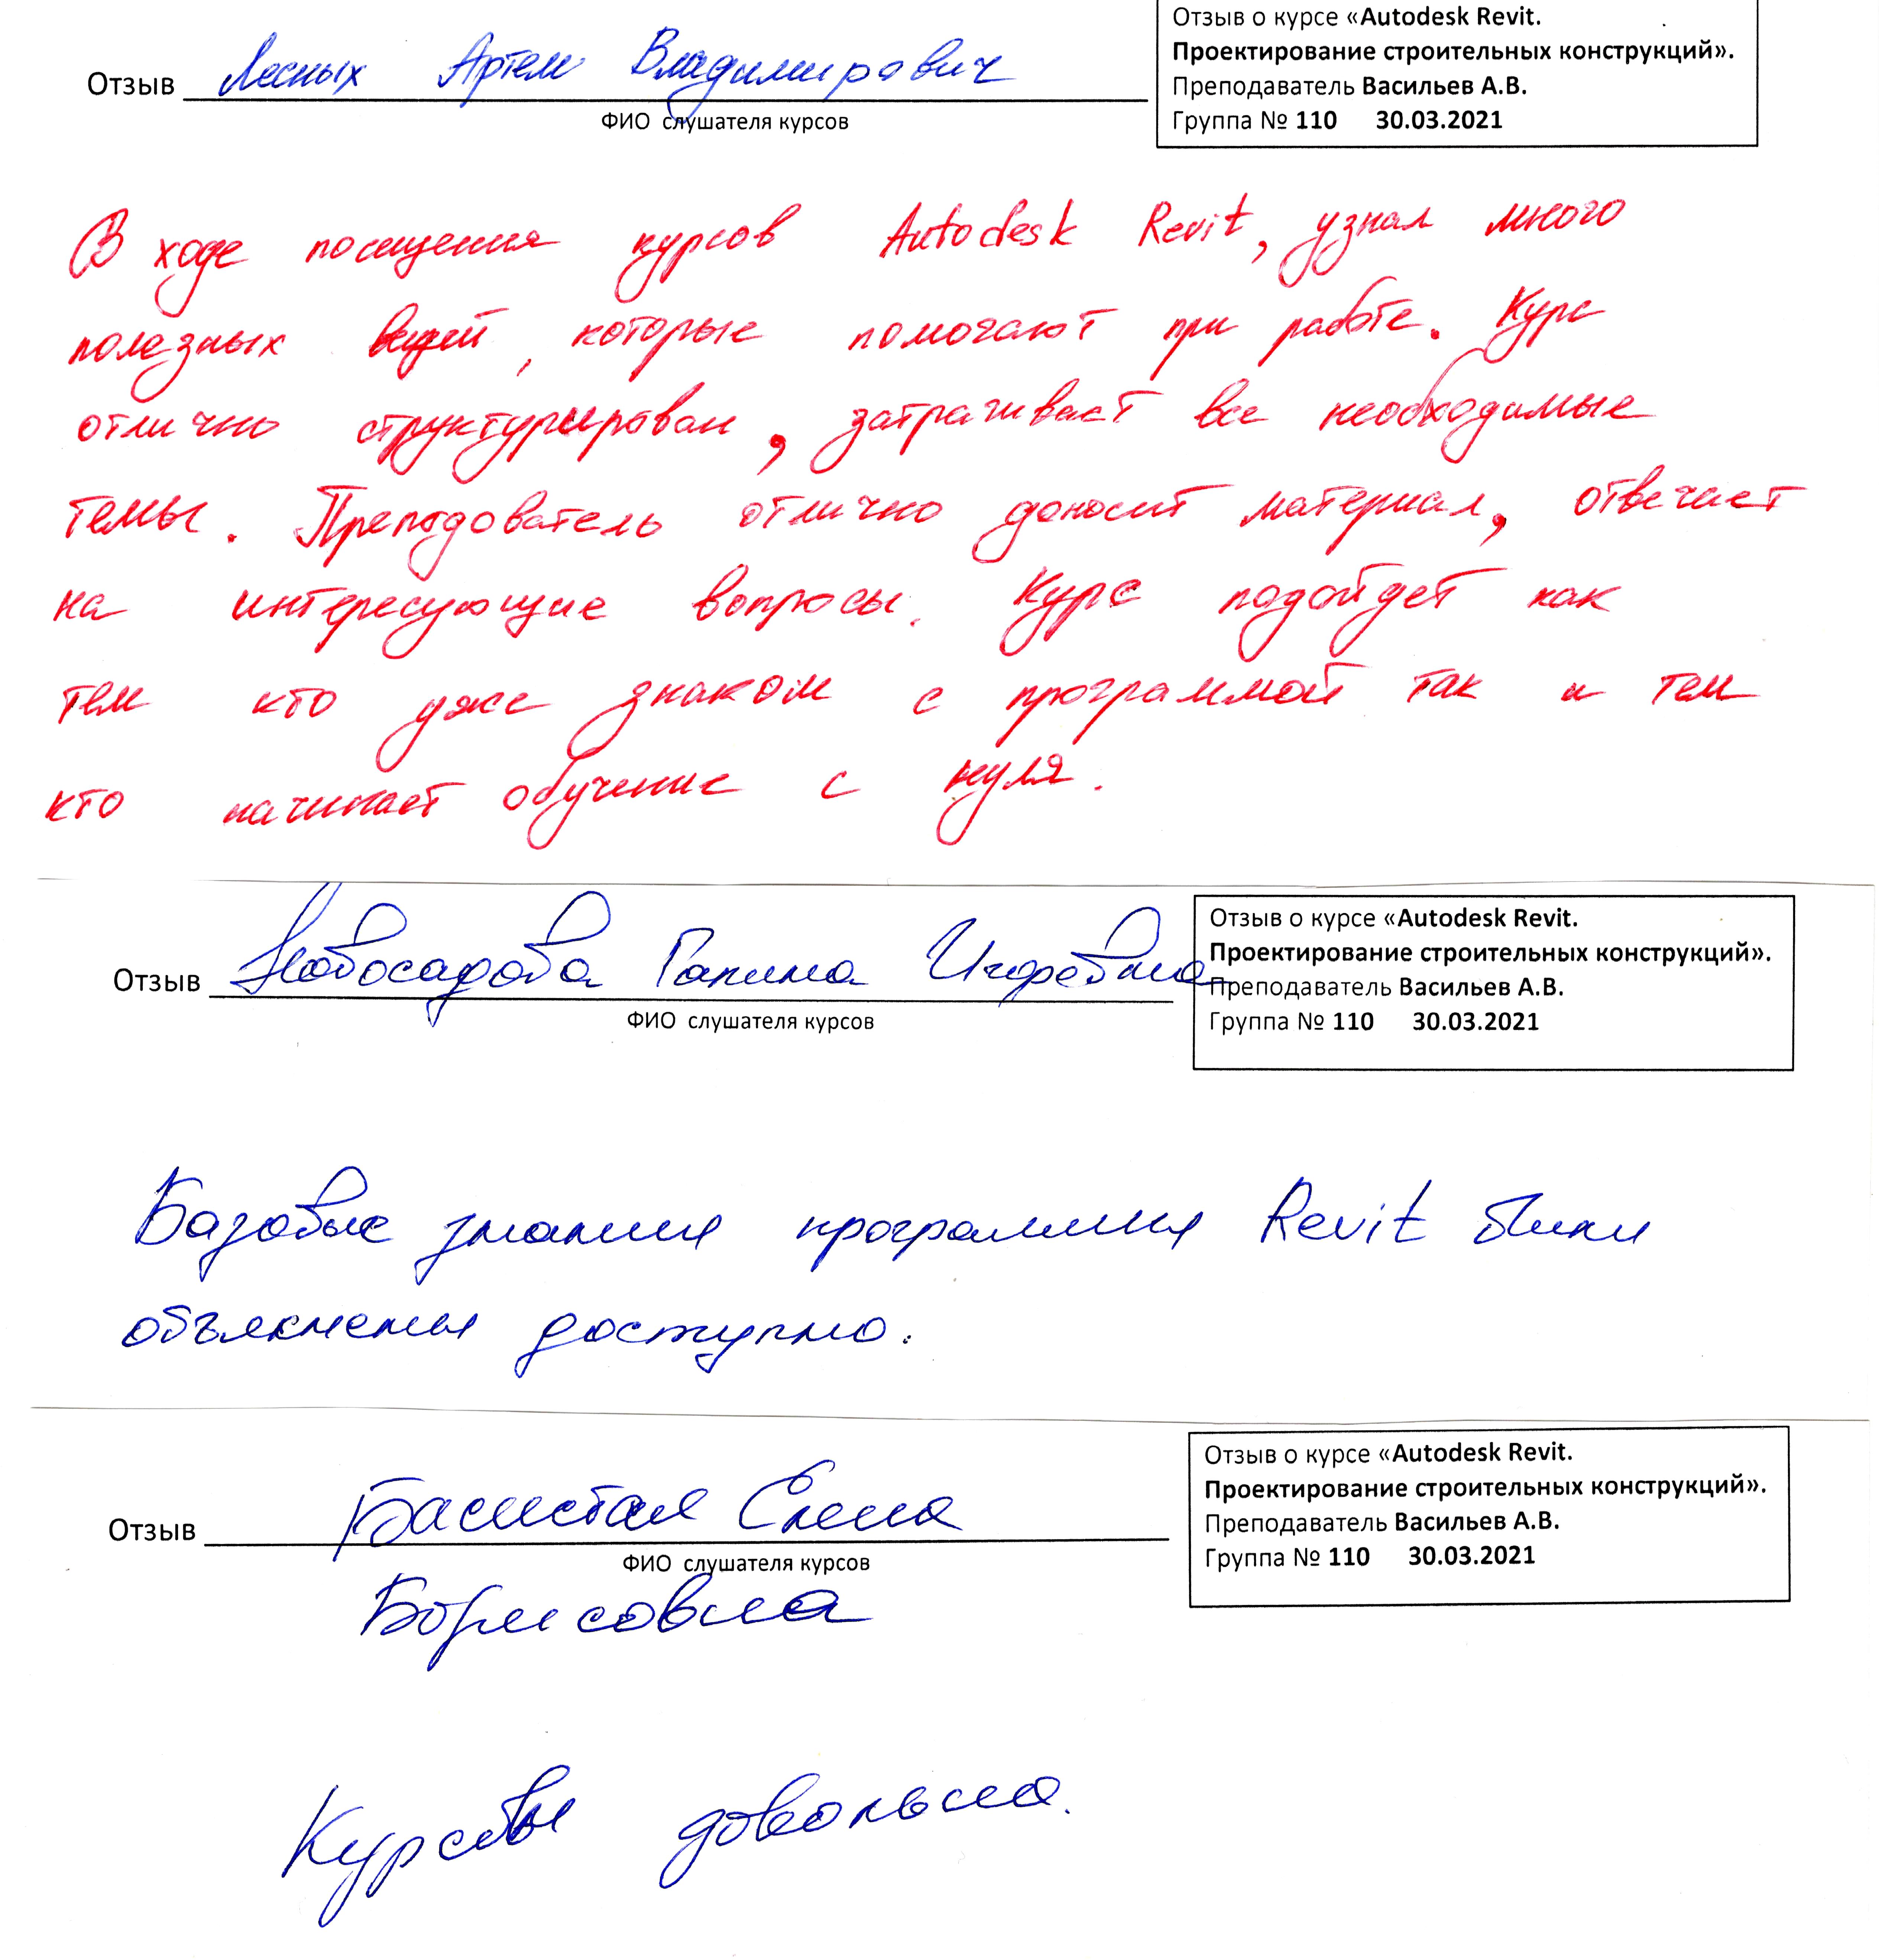 Отзыв о курсе «Autodesk Revit.
Проектирование строительных конструкций».
Преподаватель Васильев А.В.
Группа № 110 30.03.2021
Отзыв Лесных Артем Владимирович
ФИО слушателя курсов
В ходе посещения курсов Autodesk Revit, узнал много
полезных вещей, которые помогают при работе. Курс
отлично структурирован, затрагивает все необходимые
темы. Преподователь отлично доносит материал, отвечает
на интересующие вопросы. Курс подойдет как
тем кто уже знаком с программой так и тем
кто начинает обучение с нуля.
Отзыв о курсе «Autodesk Revit.
Проектирование строительных конструкций».
Преподаватель Васильев А.В.
Группа № 110 30.03.2021
Отзыв Новосадова Галина Игоревна
ФИО слушателя курсов
Базовые знания программы Revit были
объяснены доступно.
Отзыв о курсе «Autodesk Revit.
Проектирование строительных конструкций».
Преподаватель Васильев А.В.
Группа № 110 30.03.2021
Отзыв Басистая Елена
ФИО слушателя курсов
Борисовна
довольна.